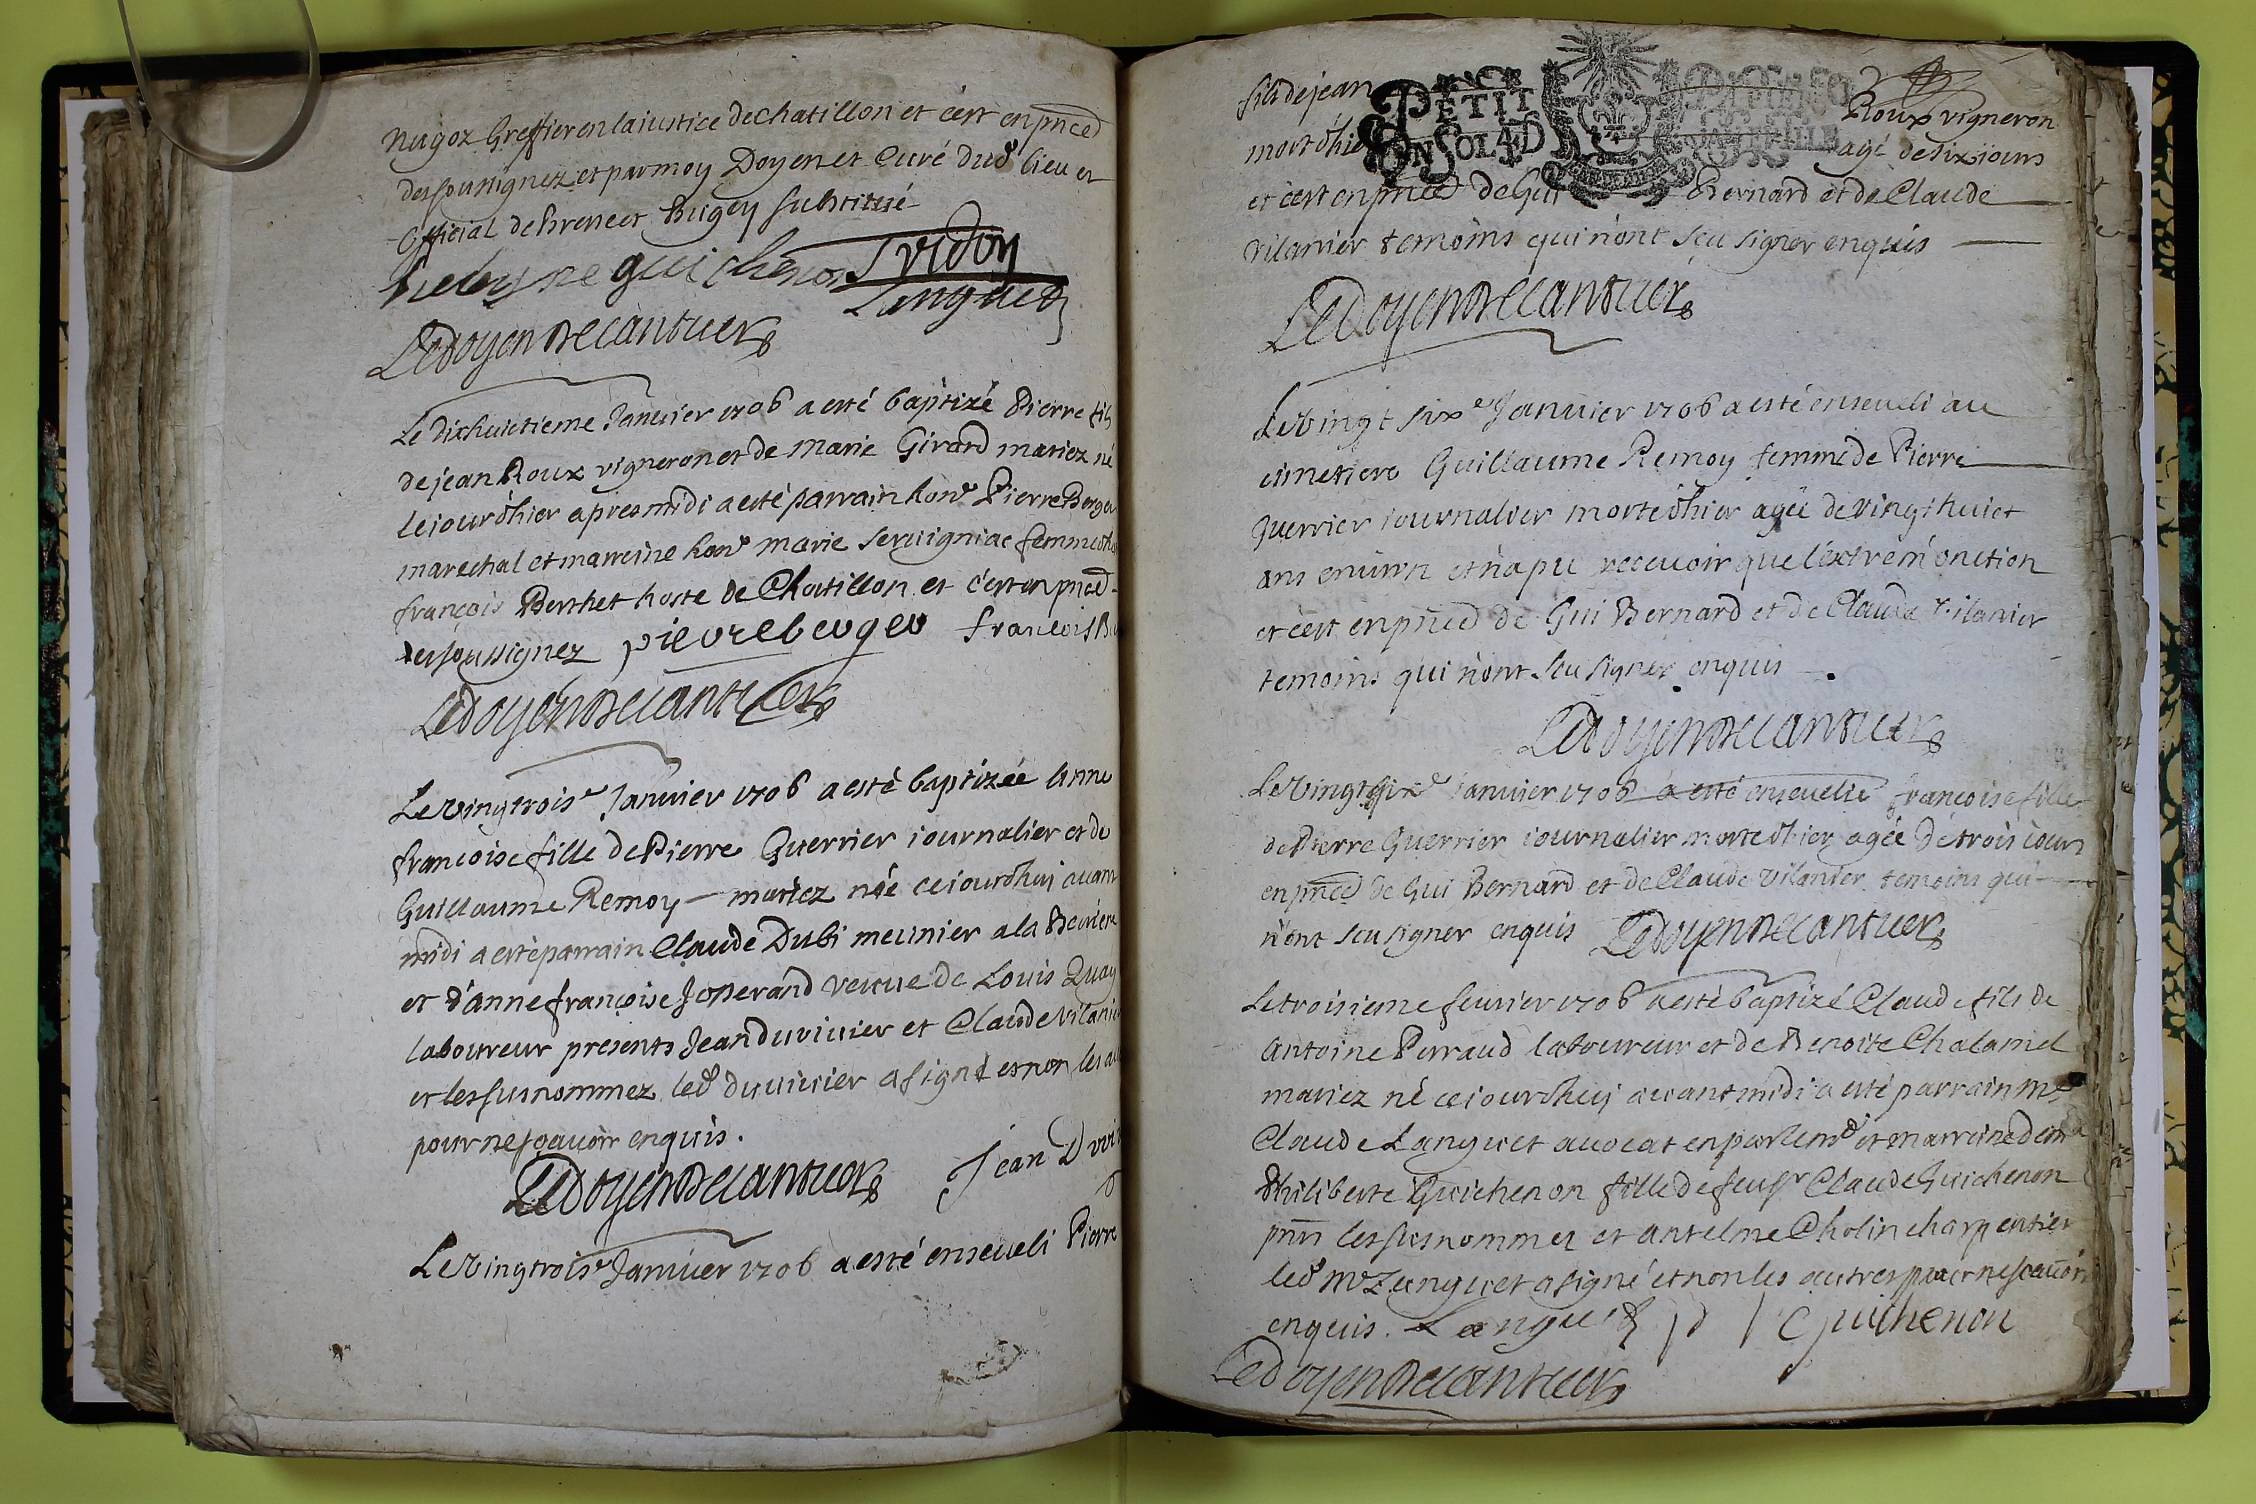 Nugoz Greffier en la iustice de chatillon et c'est en pnce
des soussignez et par moy Doyen et Curé dud lieu et
Official de Bresse et Bugey substitué
guichenon Tridon
Languet
Le doyen Decantuer
Le dixhuictieme Janvier 1706 a esté baptizé Pierre fils
de jean Roux vigneron et de Marie Girard mariez né
le jour d'hier apres midi a esté parrain hone Pierre Berger
marechal et marreine hone marie Seruigniac femme de
françois Berthet hoste de Chatillon et c'est en pnce
des soussignez pierre berger francois B
Le doyen Decantuer
Le Vingtroise Janvier 1706 a esté baptizée Anne
francoise fille de Pierre Guerrier iournalier et de
Guillaume Remoy mariez née ce iourdhuy auant
midi a esté parrain Claude Dubi meunier a la Beuriere
et d'anne françoise Josserand veuue de Louis Quay
laboureur presents Jean duuiuier et Claude Vilanier
et les susnommez led duuiuier a signé et non les au
pour ne sçauoir enquis.
Le doyen Decantuer Jean Duvivi
Le Vingtroise Janvier 1706 a esté enseueli Pierre
fils de jean Roux vigneron
PETIT PAPIER
EN SOL 4D
mort d'hier agé de six iours
et c'est en pnce de Gui Bernard et de Claude
Vilanier temoins qui n'ont sçu signer enquis
Le doyen Decantuer
Le Vingt sixe Janvier 1706 a esté enseueli au
cimetiere Guillaume Remoy femme de Pierre
Guerrier iournalier morte d'hier agée de vingt huict
ans enuiron et n'a pu receuoir que l'extrem' onction
et c'est en pnce de Gui Bernard et de Claude Vilanier
temoins qui n'ont sçu signer enquis
Le doyen Decantuer
Le Vingt sixe Janvier 1706 a esté enseuelie francoise fille
de Pierre Guerrier iournalier morte d'hier agée de trois iours
en pnce de Gui Bernard et de Claude Vilanier temoins qui
n'ont sçu signer enquis Le doyen Decantuer
Le troisieme feurier 1706 a esté baptizé Claude fils de
Antoine Perraud laboureur et de Benoite Chalamel
mariez né ce iourdhuy auant midi a esté parrain Me
Claude Languet auocat en parlemt et marreine demlle
Philiberte Guichenon fille de feu sr Claude Guichenon
pnts les susnommez et Antelme Cholin charpentier
led Mr Languet a signé et non les autres pour ne sçauoir
enquis. Languet p Guichenon
Le doyen Decantuer